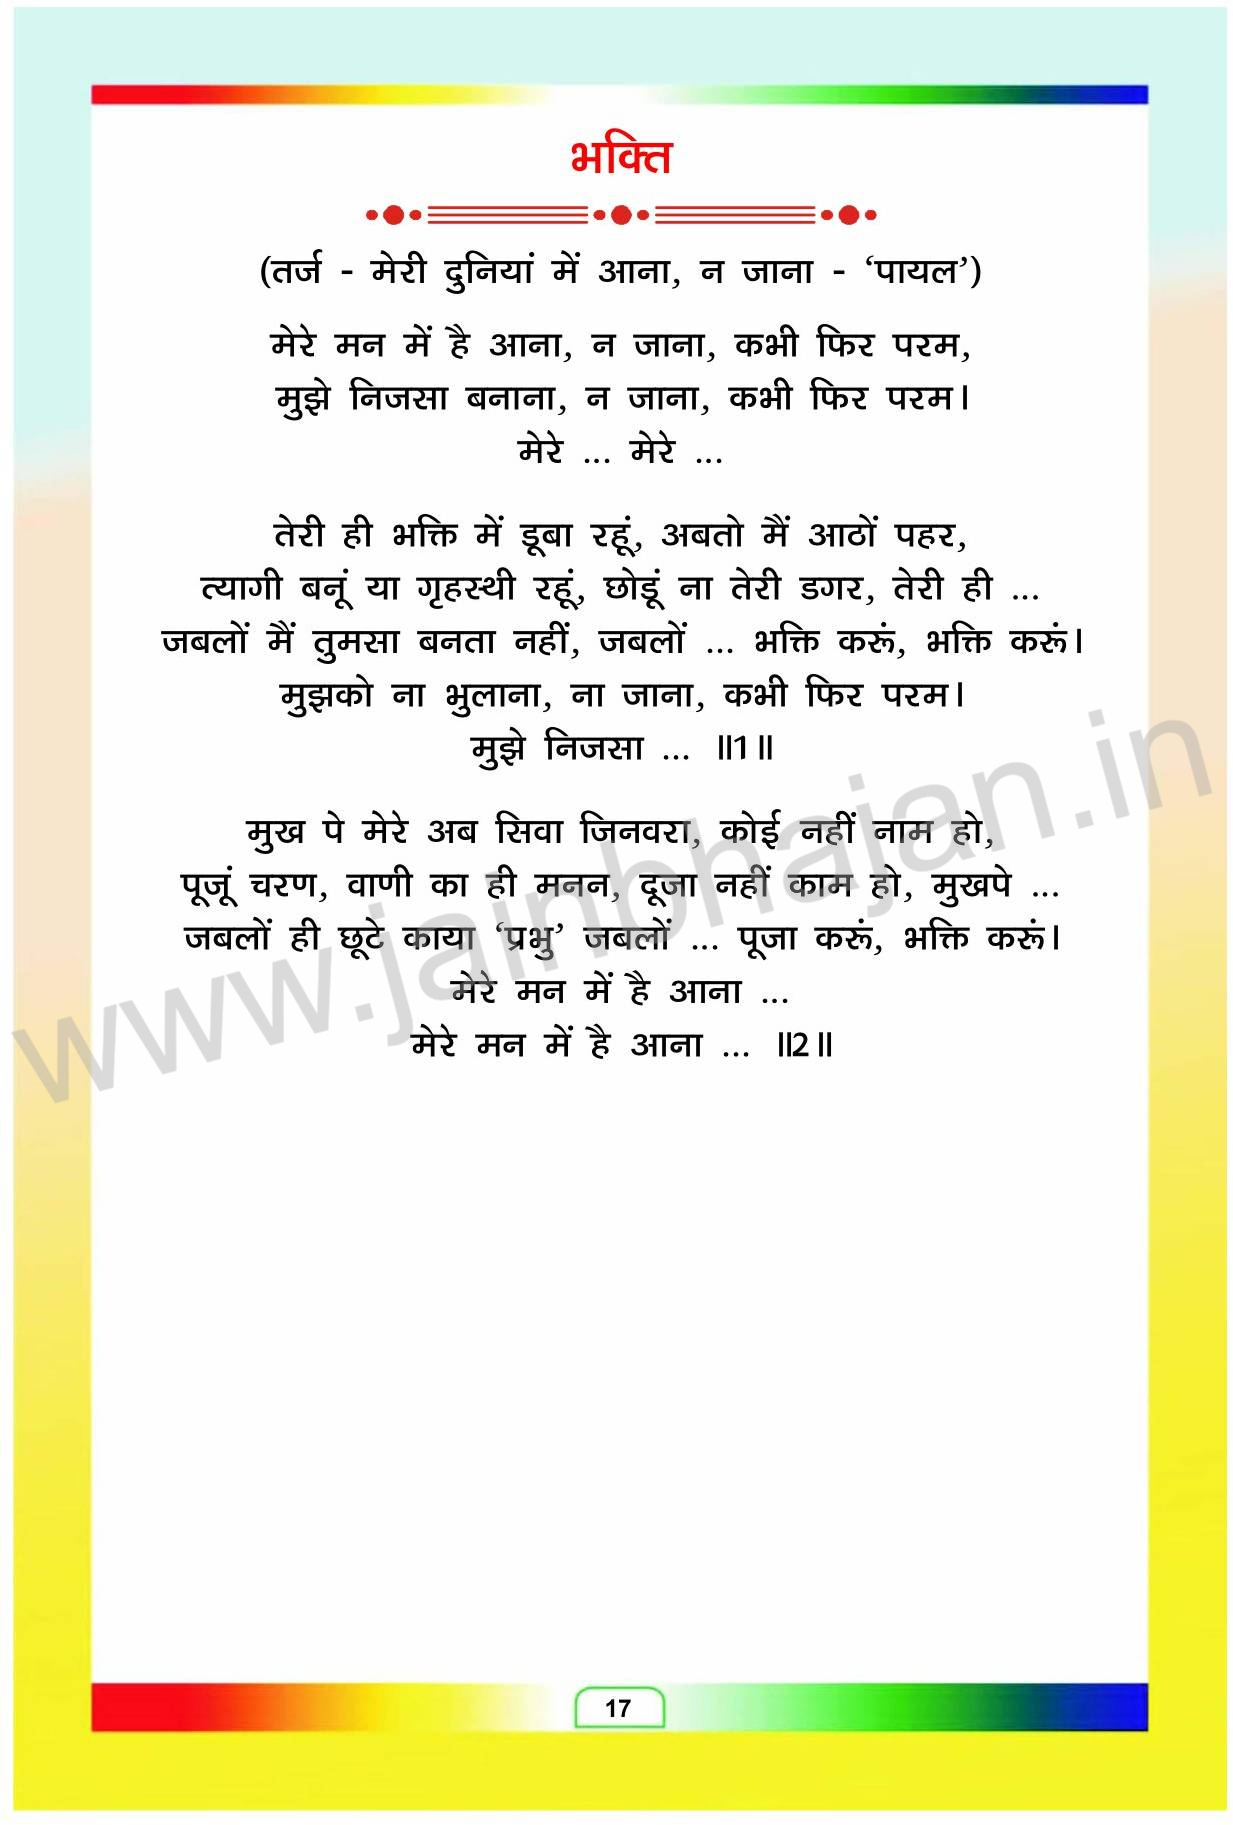 भक्ति
(तर्ज - मेरी दुनियां में आना, न जाना - ‘पायल’)
मेरे मन में है आना, न जाना, कभी फिर परम,
मुझे निजसा बनाना, न जाना, कभी फिर परम।
मेरे ... मेरे ...
तेरी ही भक्ति में डूबा रहूं, अबतो मैं आठों पहर,
त्यागी बनूं या गृहस्थी रहूं, छोडूं ना तेरी डगर, तेरी ही ...
जबलों मैं तुमसा बनता नहीं, जबलों ... भक्ति करूं, भक्ति करूं।
मुझको ना भुलाना, ना जाना, कभी फिर परम।
मुझे निजसा ... ॥1॥
मुख पे मेरे अब सिवा जिनवरा, कोई नहीं नाम हो,
पूजूं चरण, वाणी का ही मनन, दूजा नहीं काम हो, मुखपे ...
जबलों ही छूटे काया ‘प्रभु’ जबलों ... पूजा करूं, भक्ति करूं।
मेरे मन में है आना ...
मेरे मन में है आना ... ॥2॥
www.jainbhajan.in
17